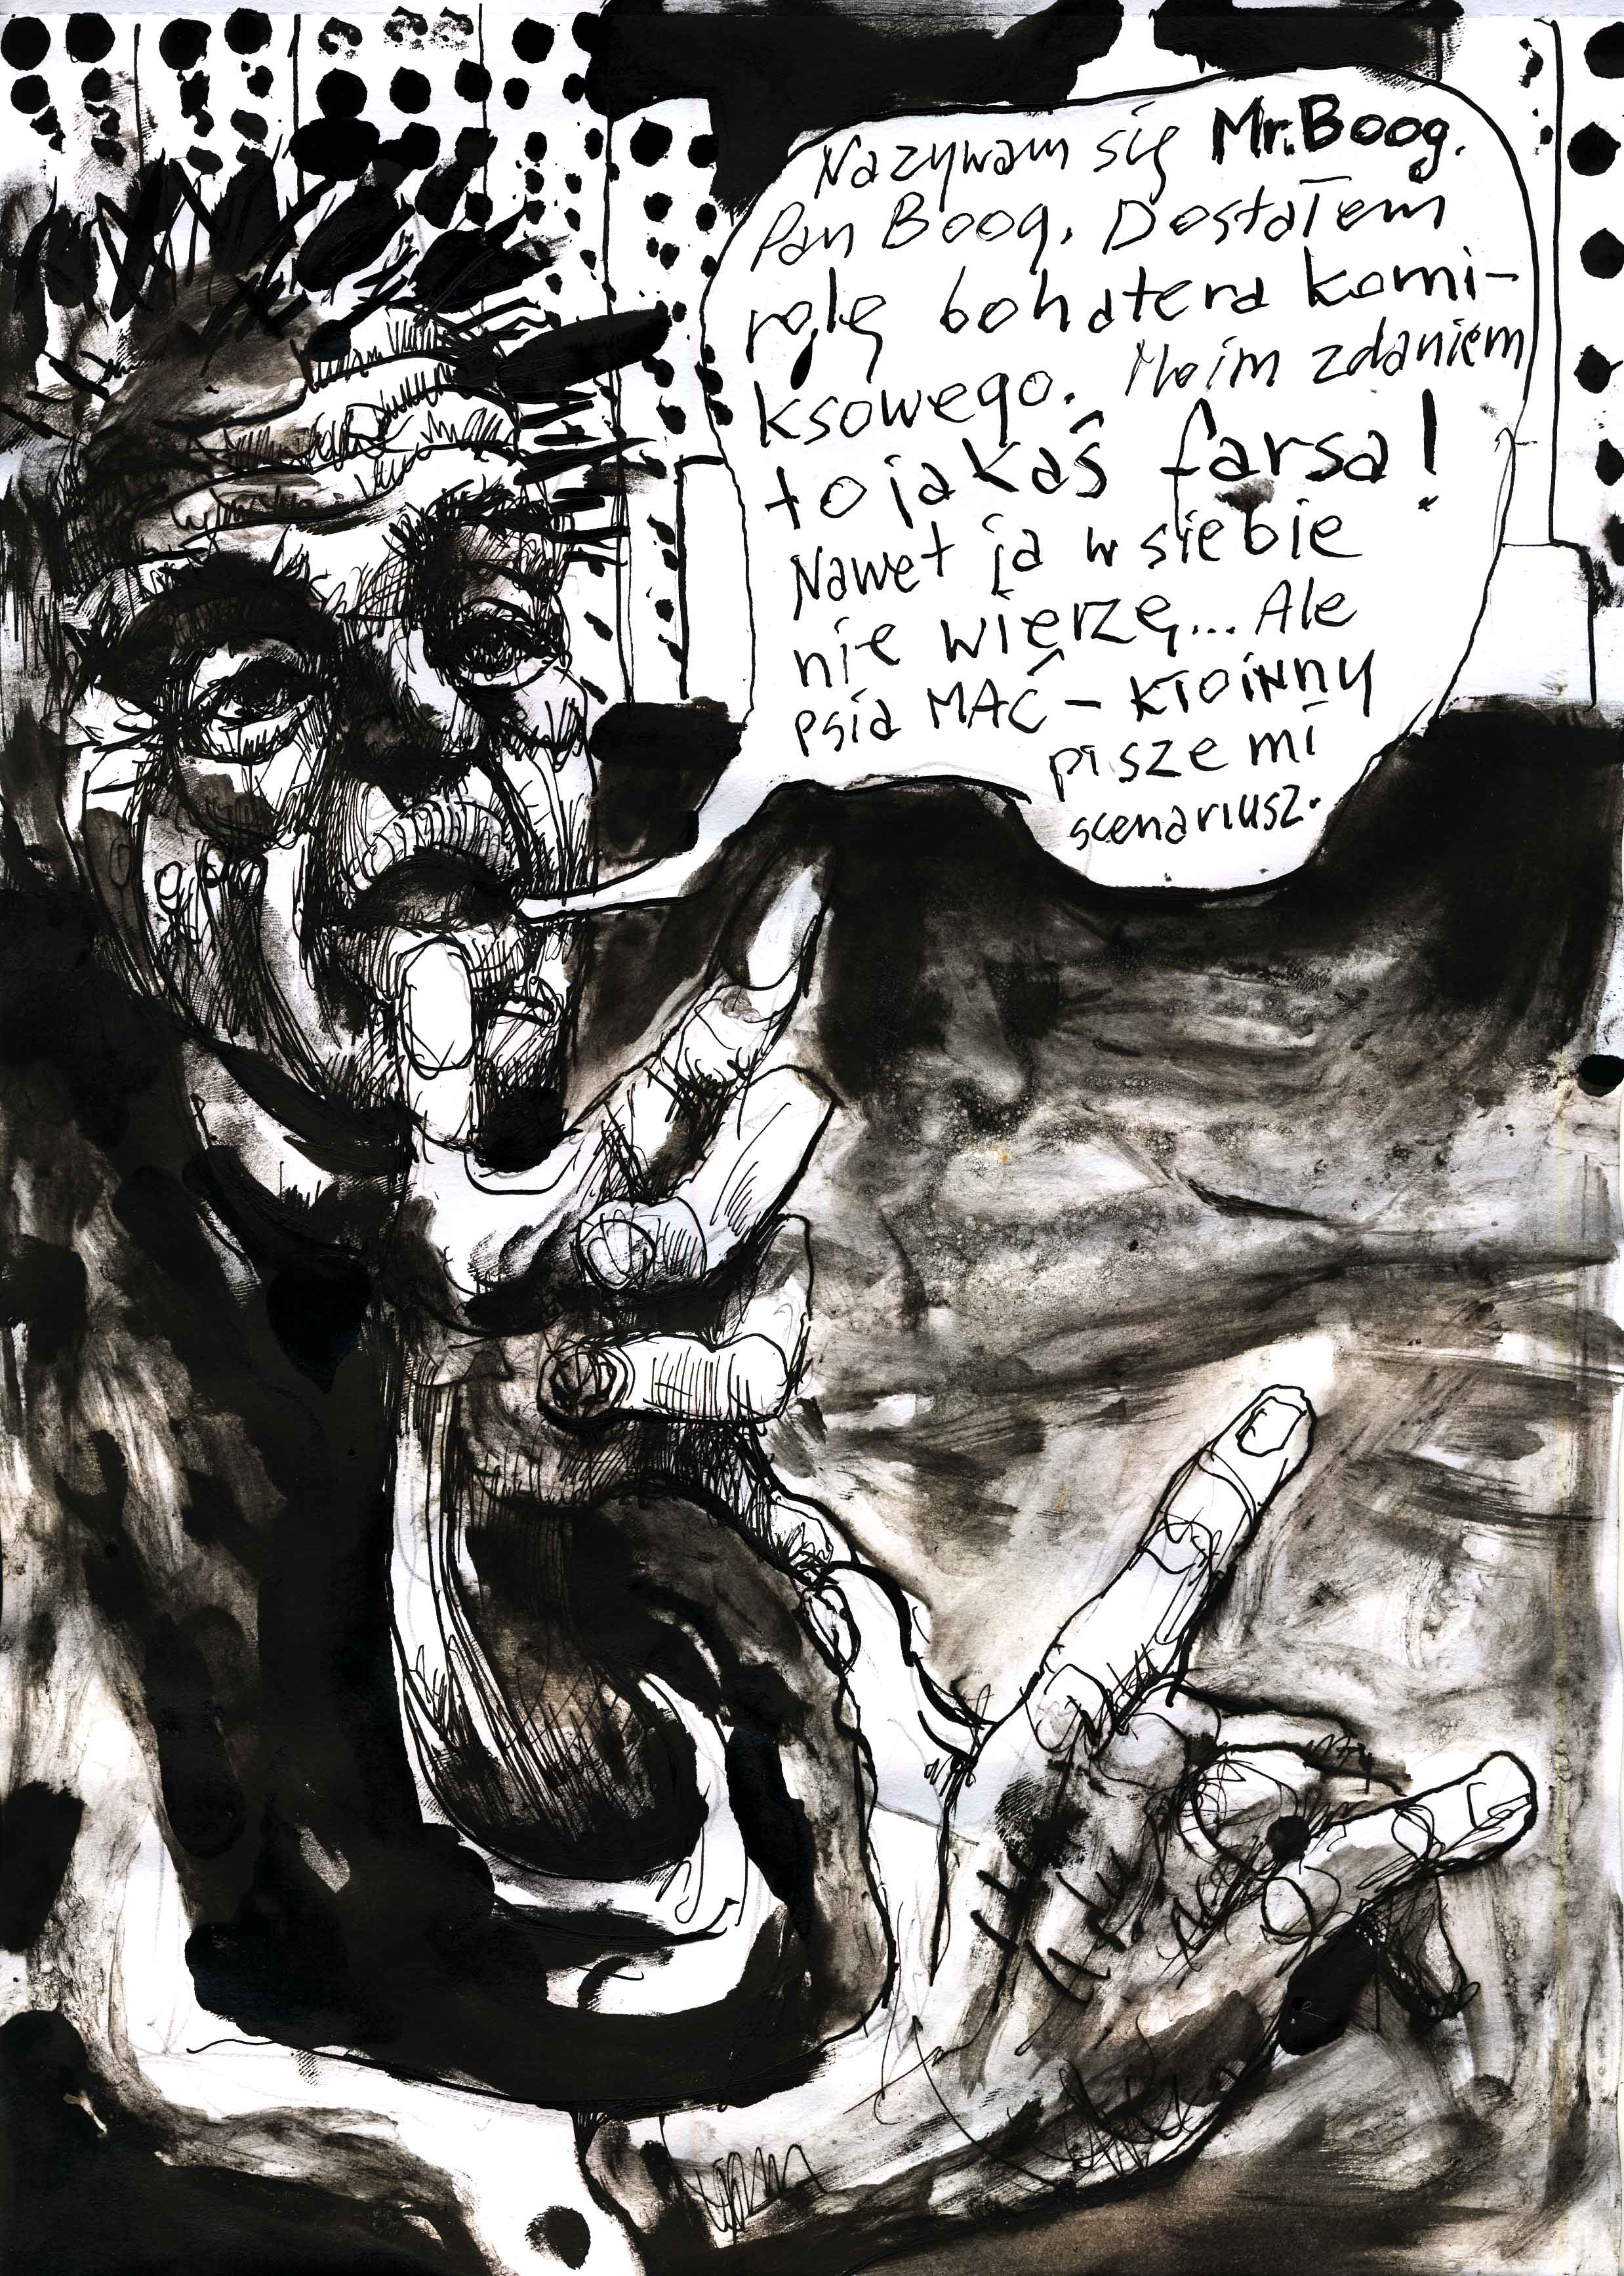 Nazywam się Mr. Boog.
Pan Boog. Dostałem
rolę bohatera komi-
ksowego. Moim zdaniem
to jakaś farsa!
Nawet ja w siebie
nie wierzę... Ale
psia MAĆ - kto inny
pisze mi
scenariusz.